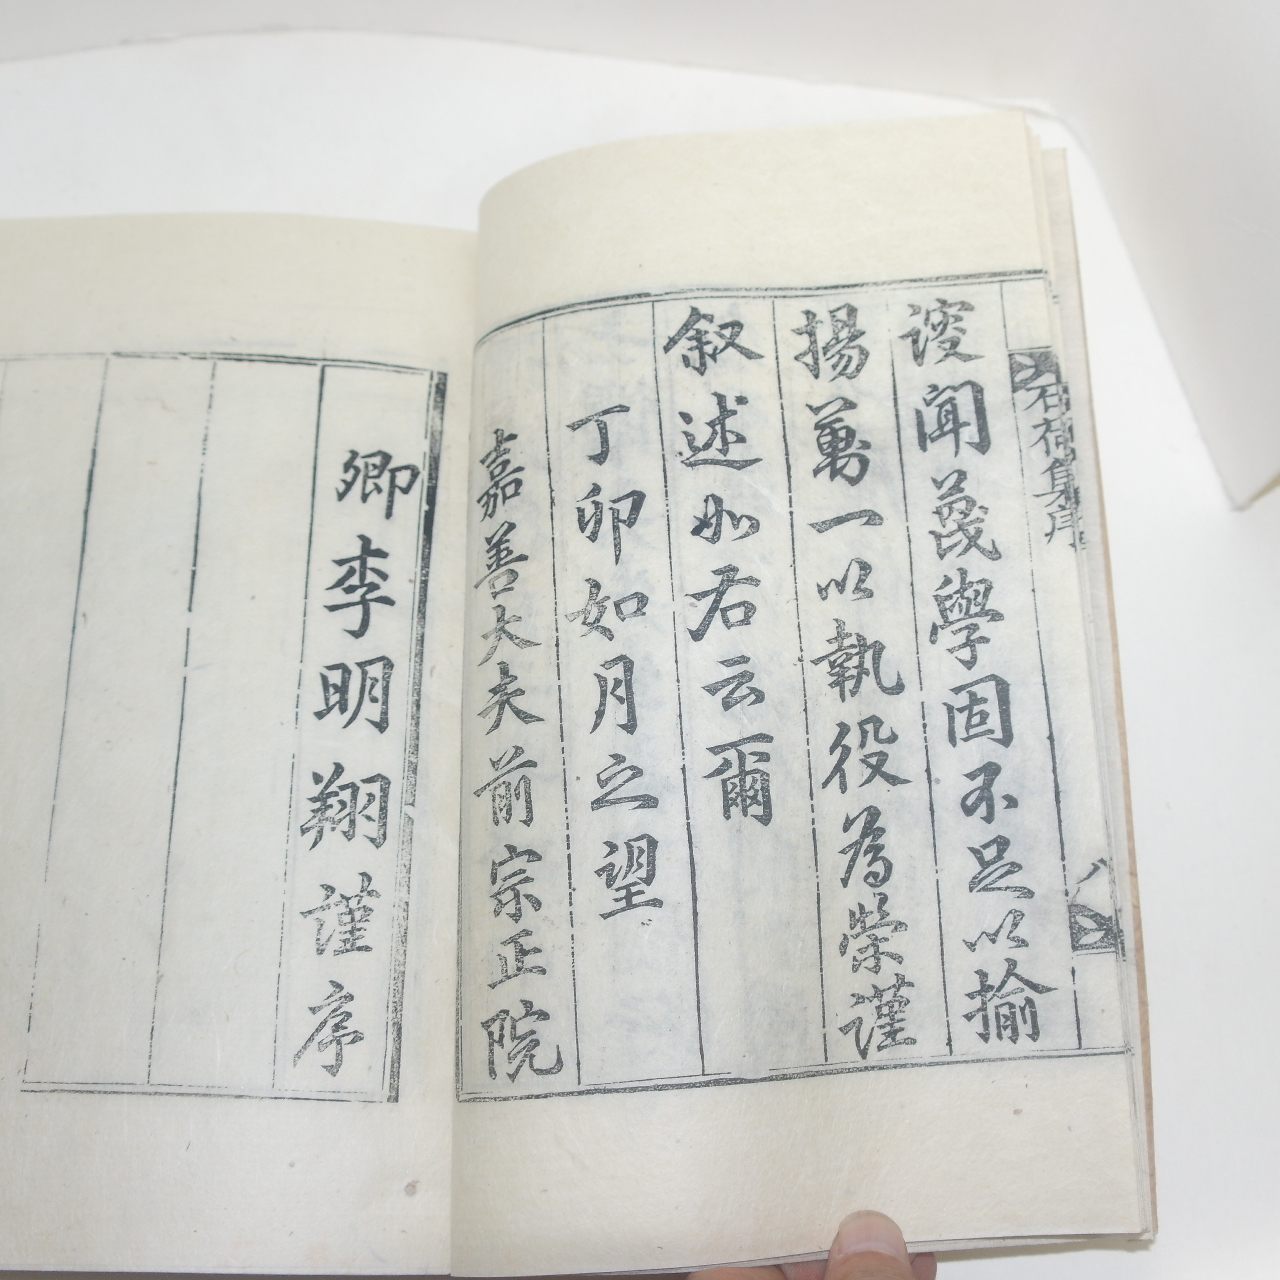 石荷集序
八
謏聞蔑學固不足以揄
揚萬一以執役為榮謹
叙述如右云爾
丁卯如月之望
嘉善大夫前宗正院
卿李明翔謹序